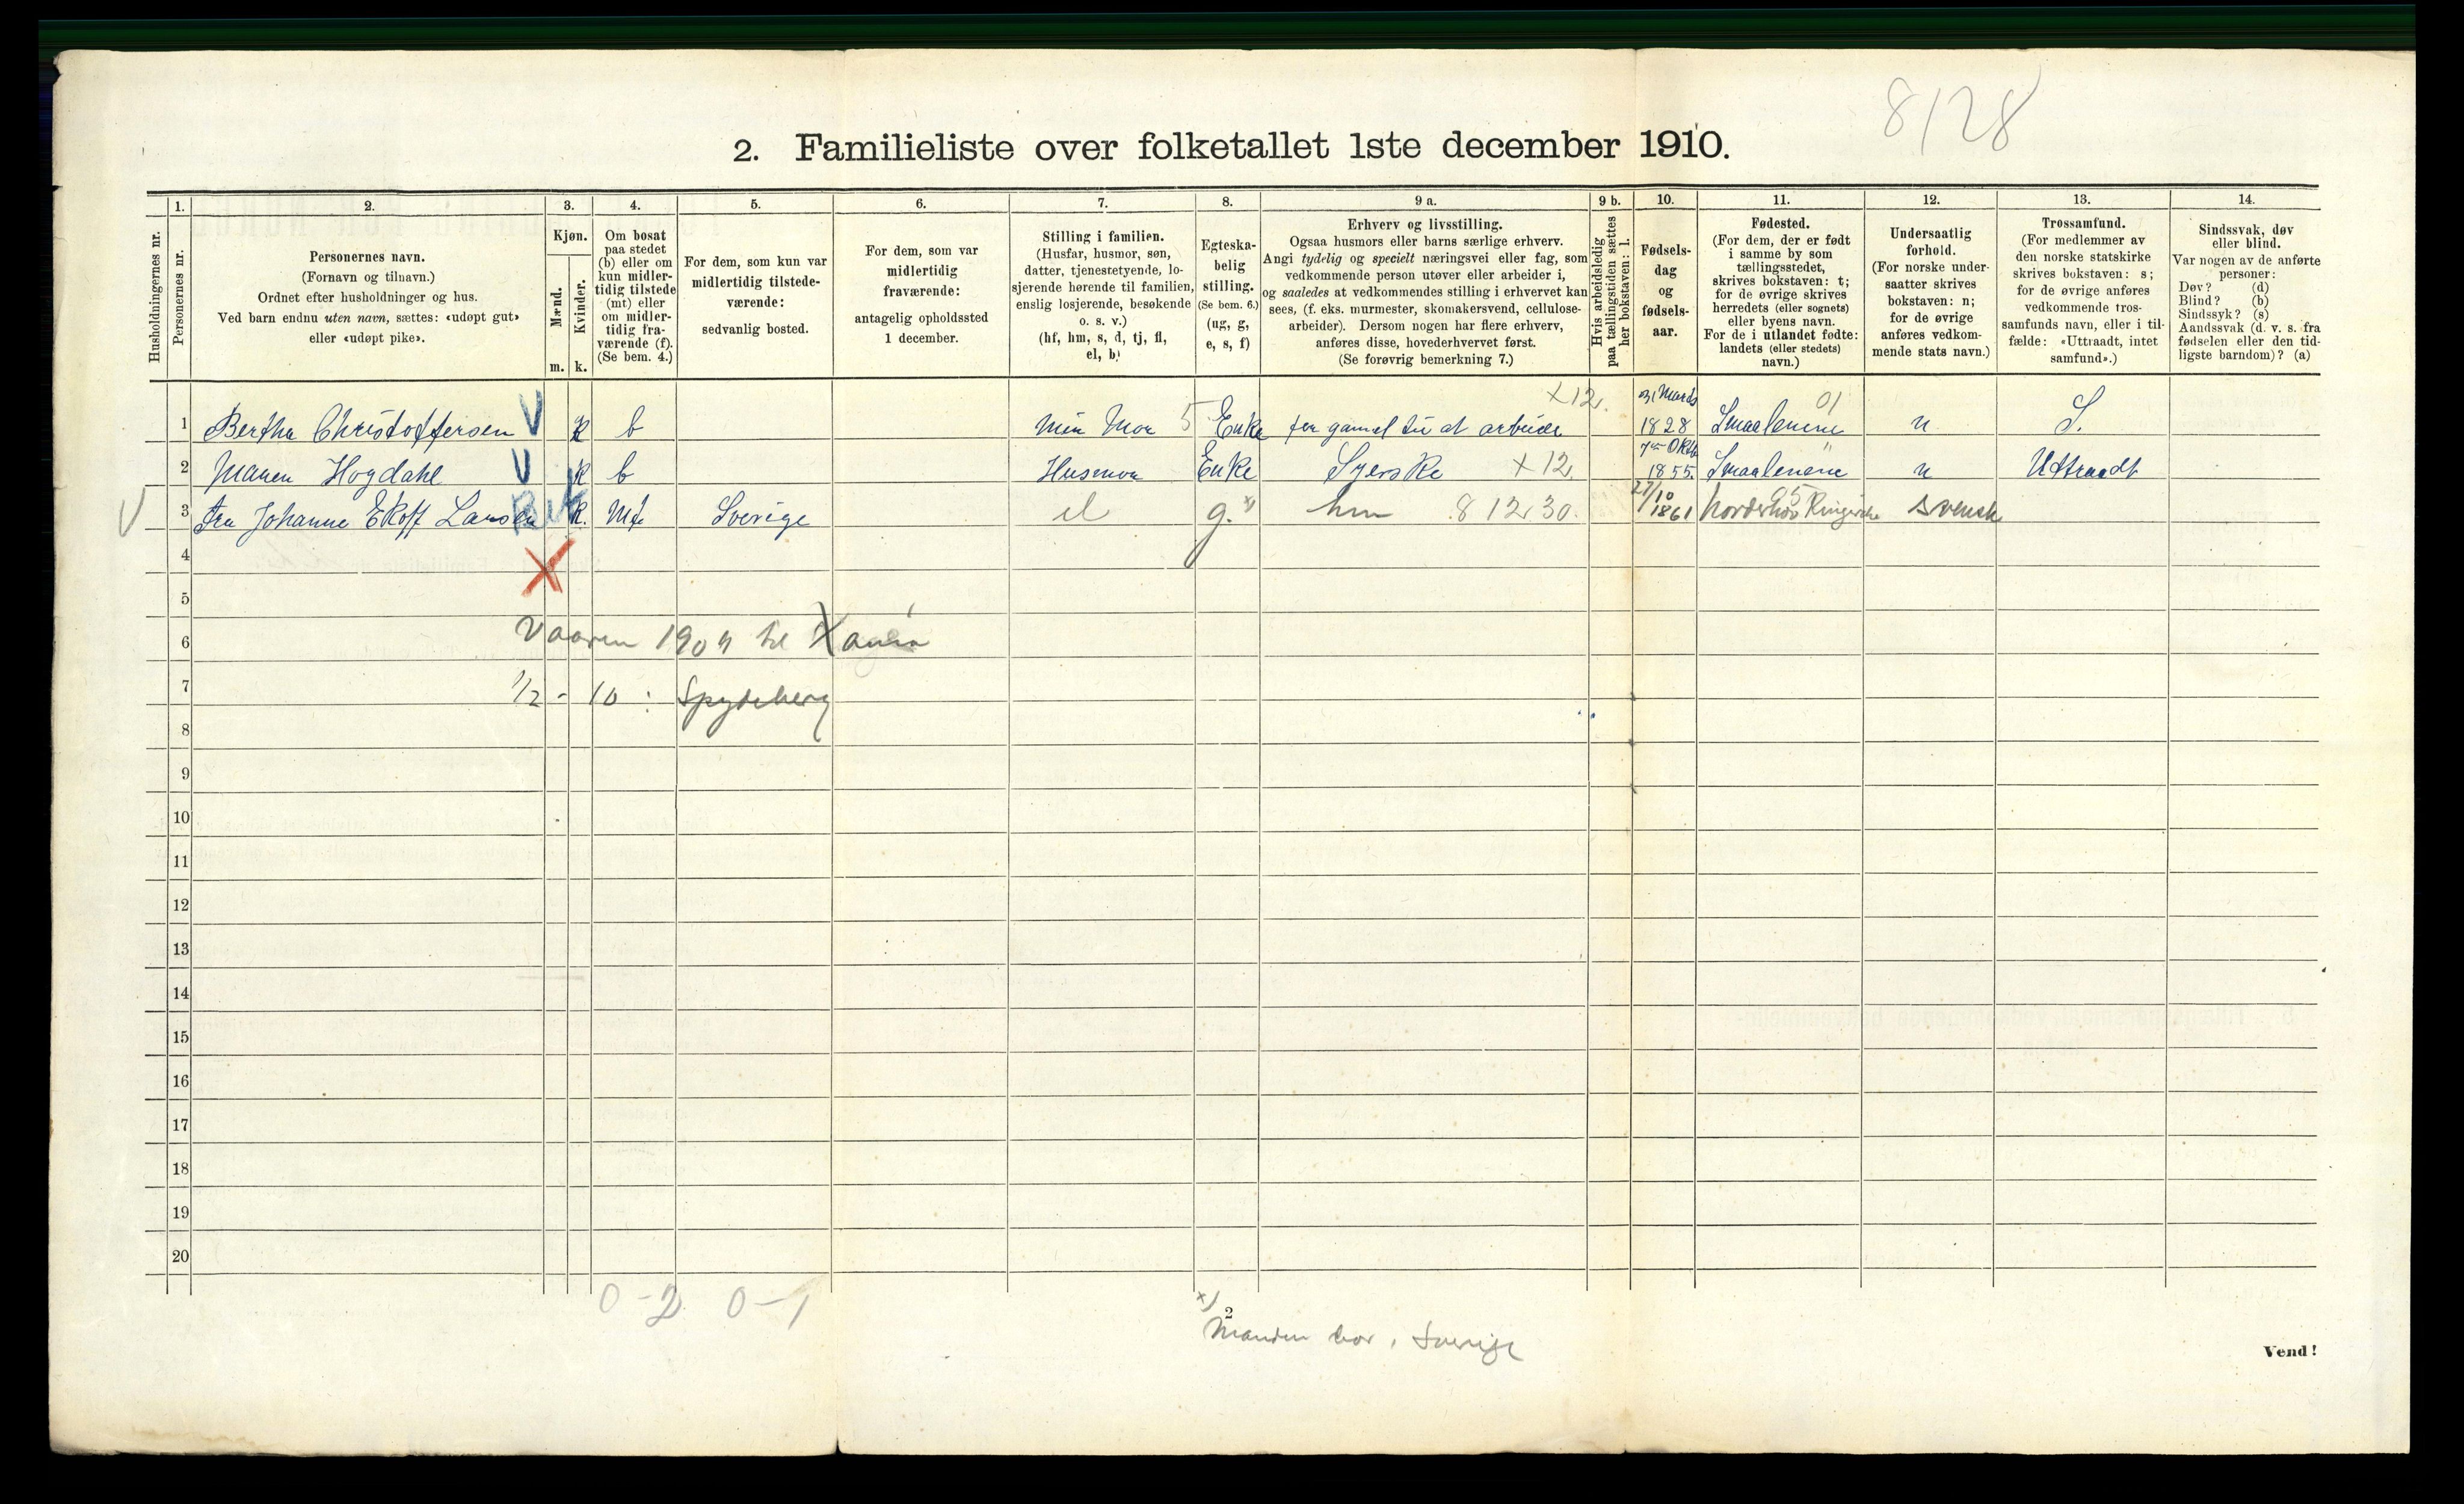 8128
2. Familieliste over folketallet 1ste december 1910.
1. 2. 3. 4. 5. 6. 7. 8. 9 a. 9 b. 10. 11. 12. 13. 14.
Husholdningernes nr.
Personernes nr.
Personernes navn.
(Fornavn og tilnavn.)
Ordnet efter husholdninger og hus.
Ved barn endnu uten navn, sættes: «udøpt gut»
eller «udøpt pike».
Kjøn.
Mænd.
Kvinder.
m. k.
Om bosat
paa stedet
(b) eller om
kun midler-
tidig tilstede
(mt) eller
om midler-
tidig fra-
værende (f).
(Se bem. 4.)
For dem, som kun var
midlertidig tilstede-
værende:
sedvanlig bosted.
For dem, som var
midlertidig
fraværende:
antagelig opholdssted
1 december.
Stilling i familien.
(Husfar, husmor, søn,
datter, tjenestetyende, lo-
sjerende hørende til familien,
enslig losjerende, besøkende
o. s. v.)
(hf, hm, s, d, tj, fl,
el, b)
Egteska-
belig
stilling.
(Se bem. 6.)
(ug, g,
e, s, f)
Erhverv og livsstilling.
Ogsaa husmors eller barns særlige erhverv.
Angi tydelig og specielt næringsvei eller fag, som
vedkommende person utøver eller arbeider i,
og saaledes at vedkommendes stilling i erhvervet kan
sees, (f. eks. murmester, skomakersvend, cellulose-
arbeider). Dersom nogen har flere erhverv,
anføres disse, hovederhvervet først.
(Se forøvrig bemerkning 7.)
Hvis arbeidsledig
paa tællingstiden sættes
her bokstaven: l.
Fødsels-
dag
og
fødsels-
aar.
Fødested.
(For dem, der er født
i samme by som
tællingsstedet,
skrives bokstaven: t;
for de øvrige skrives
herredets (eller sognets)
eller byens navn.
For de i utlandet fødte:
landets (eller stedets)
navn.)
Undersaatlig
forhold.
(For norske under-
saatter skrives
bokstaven: n;
for de øvrige
anføres vedkom-
mende stats navn.)
Trossamfund.
(For medlemmer av
den norske statskirke
skrives bokstaven: s;
for de øvrige anføres
vedkommende tros-
samfunds navn, eller i til-
fælde: «Uttraadt, intet
samfund».)
Sindssvak, døv
eller blind.
Var nogen av de anførte
personer:
Døv? (d)
Blind? (b)
Sindssyk? (s)
Aandssvak (d. v. s. fra
fødselen eller den tid-
ligste barndom)? (a)
×12. 31 Marts 01
1 Bertha Christoffersen V K b Min Mor 5 Enke for gamel til at arbeide 1828 Smaalenene n S.
7de Oktb
2 Maren Hogdahl V K b Husmor Enke Syerske ×12. 1855. Smaalenene " n Uttraadt
V 3 Fru Johanne Ekoff Larsen K. Mt Sverige el g. ×) hm 8 12.30. 27/10 1861 Norderhov Ringerike svensk
4 X
5
6 Vaaren 1909 til Xania
7 1/2 - 10 : Spydeberg
8
9
10
11
12
13
14
15
16
17
18
19
20
0-2 0-1
×)
2
Manden bor i Sverige
Vend!